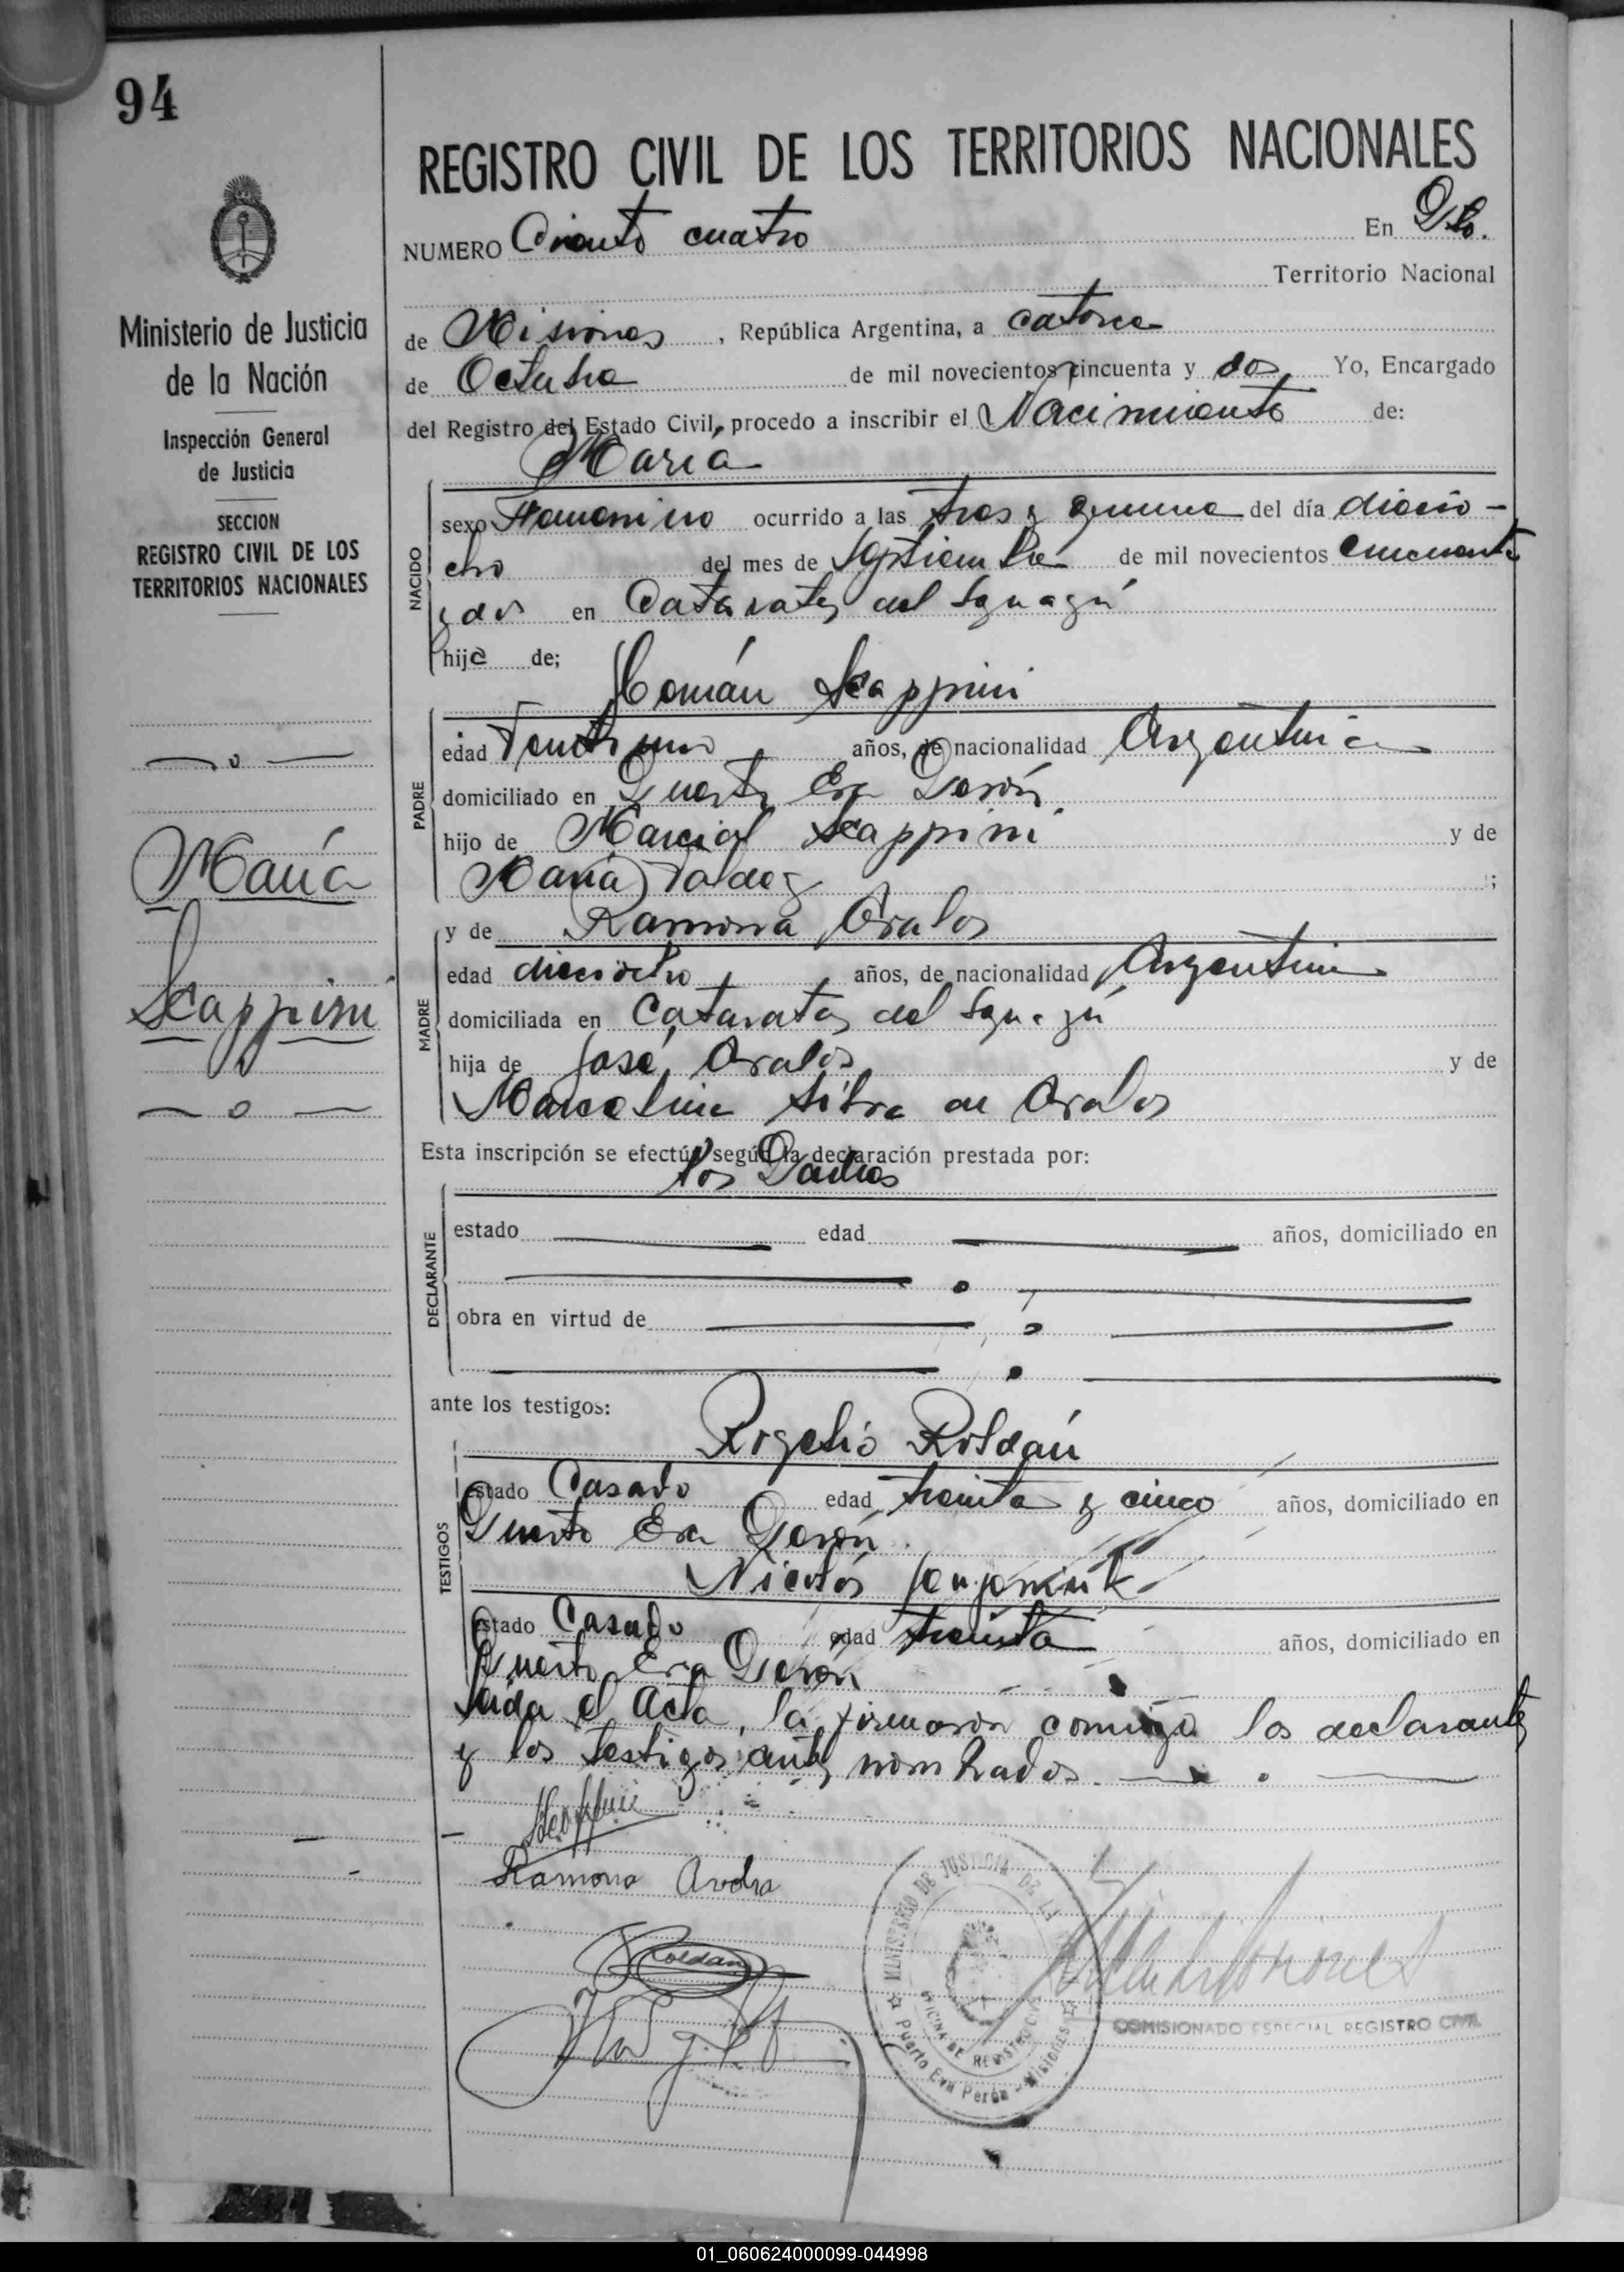 94
REGISTRO CIVIL DE LOS TERRITORIOS NACIONALES
NUMERO Ciento cuatro En Pto.
Territorio Nacional
de Misiones, República Argentina, a catorce
de Octubre de mil novecientos cincuenta y dos Yo, Encargado
del Registro del Estado Civil, procedo a inscribir el Nacimiento de:
María
NACIDO
sexo Femenino ocurrido a las tres y quince del día diecio-
cho del mes de Septiembre de mil novecientos cincuenta
y dos en Cataratas del Iguazú
hija de;
Román Scappini
PADRE
edad años, de nacionalidad Argentina
domiciliado en Puerto Eva Perón
hijo de Marcial Scappini y de
María Valdez ;
MADRE
y de Ramona Avalos
edad dieciocho años, de nacionalidad Argentina
domiciliada en Cataratas del Iguazú
hija de José Avalos y de
Marcelina Silva de Avalos
Esta inscripción se efectúa según la declaración prestada por:
los Padres
DECLARANTE
estado edad años, domiciliado en
obra en virtud de
ante los testigos:
Rogelio Roldán
TESTIGOS
estado Casado edad treinta y cinco años, domiciliado en
Puerto Eva Perón.
Nicolás
estado Casado edad treinta años, domiciliado en
Puerto Eva Perón
Leida el Acta, la firmaron conmigo los declarantes
y los testigos antes nombrados.
Scappini
Ramona Avalos
Roldan
MINISTERIO DE JUSTICIA DE LA
OFICINA DE REGISTRO CIVIL
Puerto Eva Perón - Misiones
COMISIONADO ESPECIAL REGISTRO CIVIL
Ministerio de Justicia
de la Nación
Inspección General
de Justicia
SECCION
REGISTRO CIVIL DE LOS
TERRITORIOS NACIONALES
María
Scappini
01_060624000099-044998